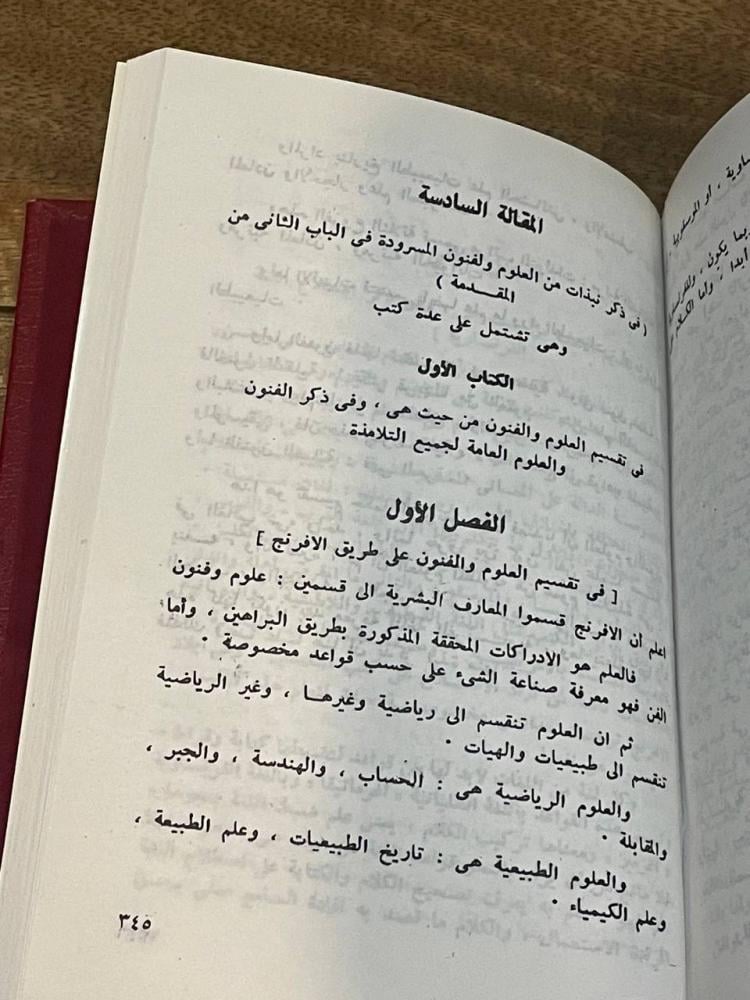 المقالة السادسة
( فى ذكر نبذات من العلوم ولفنون المسرودة فى الباب الثانى من
المقـــدمة )
وهى تشتمل على عدة كتب
الكتاب الأول
فى تقسيم العلوم والفنون من حيث هى ، وفى ذكر الفنون
والعلوم العامة لجميع التلامذة
الفصل الأول
[ فى تقسيم العلوم والفنون على طريق الافرنج ]
اعلم أن الافرنج قسموا المعارف البشرية الى قسمين : علوم وفنون
فالعلم هو الادراكات المحققة المذكورة بطريق البراهين ، وأما
الفن فهو معرفة صناعة الشىء على حسب قواعد مخصوصة .
ثم ان العلوم تنقسم الى رياضية وغيرهـا ، وغير الرياضية
تنقسم الى طبيعيات والهيات .
والعلوم الرياضية هى : الحساب ، والهندسة ، والجبر ،
والمقابلة .
والعلوم الطبيعية هى : تاريخ الطبيعيات ، وعلم الطبيعة ،
وعلم الكيمياء .
٣٤٥
ساوية ، أو الموسقوبية
ديما يكون ،
أبدا ، وأما الكلام